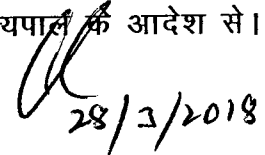 यपाल के आदेश से।
28/3/2018